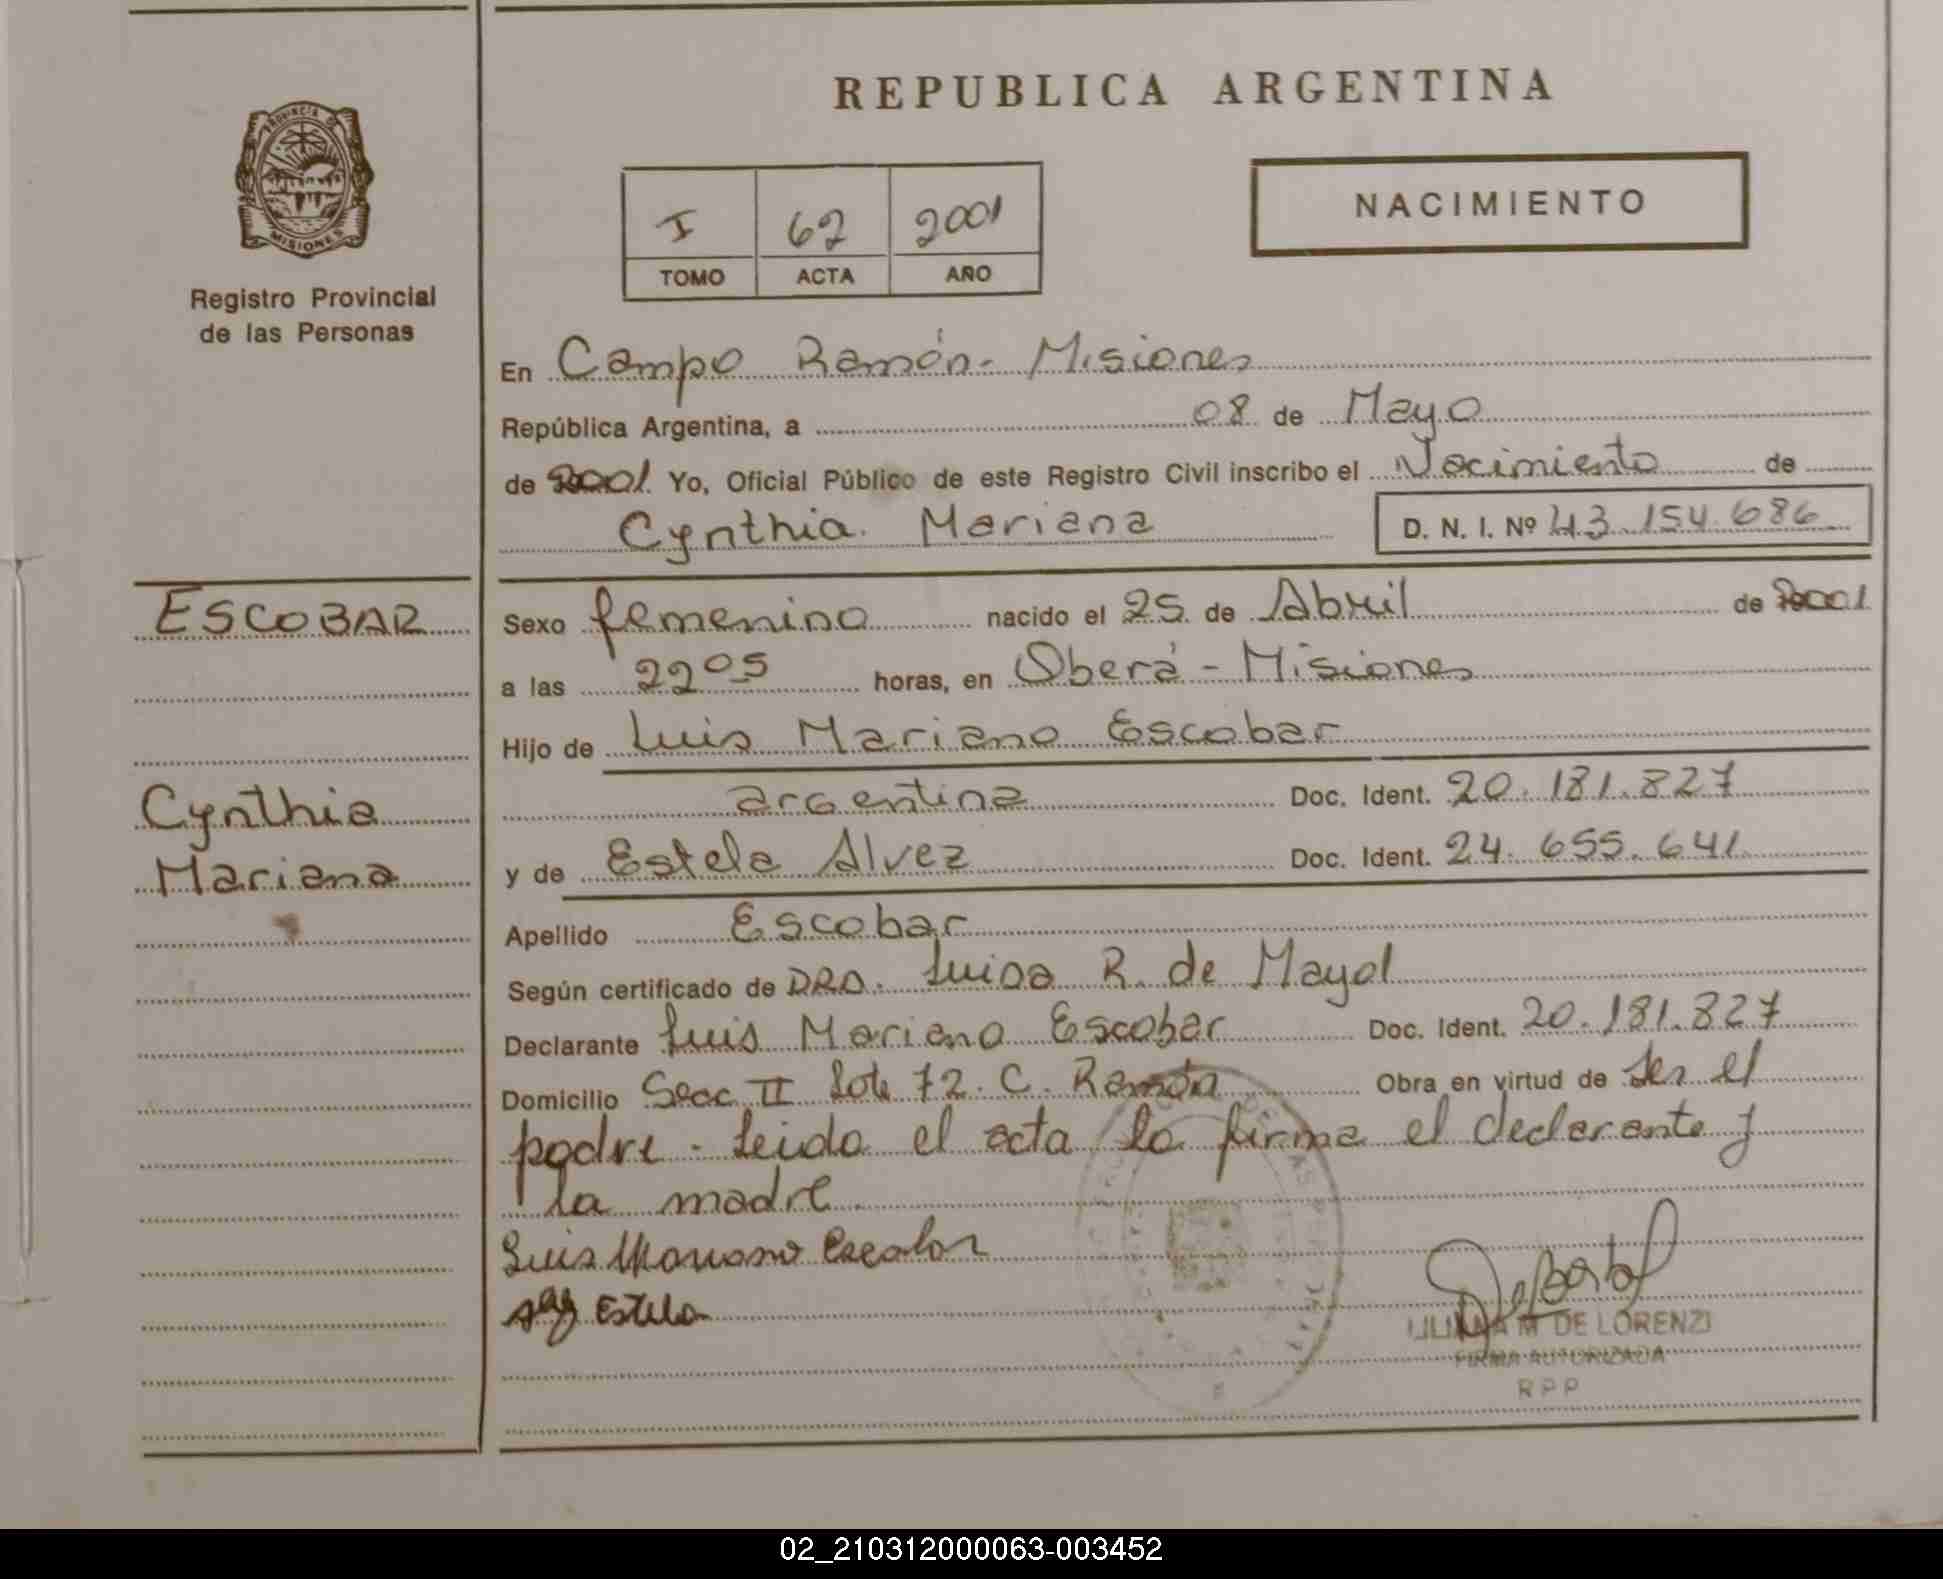 REPUBLICA ARGENTINA
PROVINCIA DE
MISIONES
Registro Provincial
de las Personas
NACIMIENTO
I 62 2001
TOMO ACTA AÑO
En Campo Ramón - Misiones
República Argentina, a 08 de Mayo
de 2001 Yo, Oficial Público de este Registro Civil inscribo el Nacimiento de
Cynthia Mariana D. N. I. Nº 43.154.686
ESCOBAR
Cynthia
Mariana
Sexo femenino nacido el 25 de Abril de 2001
a las 22 05 horas, en Oberá - Misiones
Hijo de Luis Mariano Escobar
argentina Doc. Ident. 20.181.827
y de Estela Alvez Doc. Ident. 24.655.641
Apellido Escobar
Según certificado de DRA. Luisa R. de Mayol
Declarante Luis Mariano Escobar Doc. Ident. 20.181.827
Domicilio Secc II Lote 72. C. Ramón Obra en virtud de Ser el
padre - Leida el acta la firma el declarante y
la madre.
Luis Mariano Escobar
Estela
LILIANA M DE LORENZI
FIRMA AUTORIZADA
R P P
02_210312000063-003452